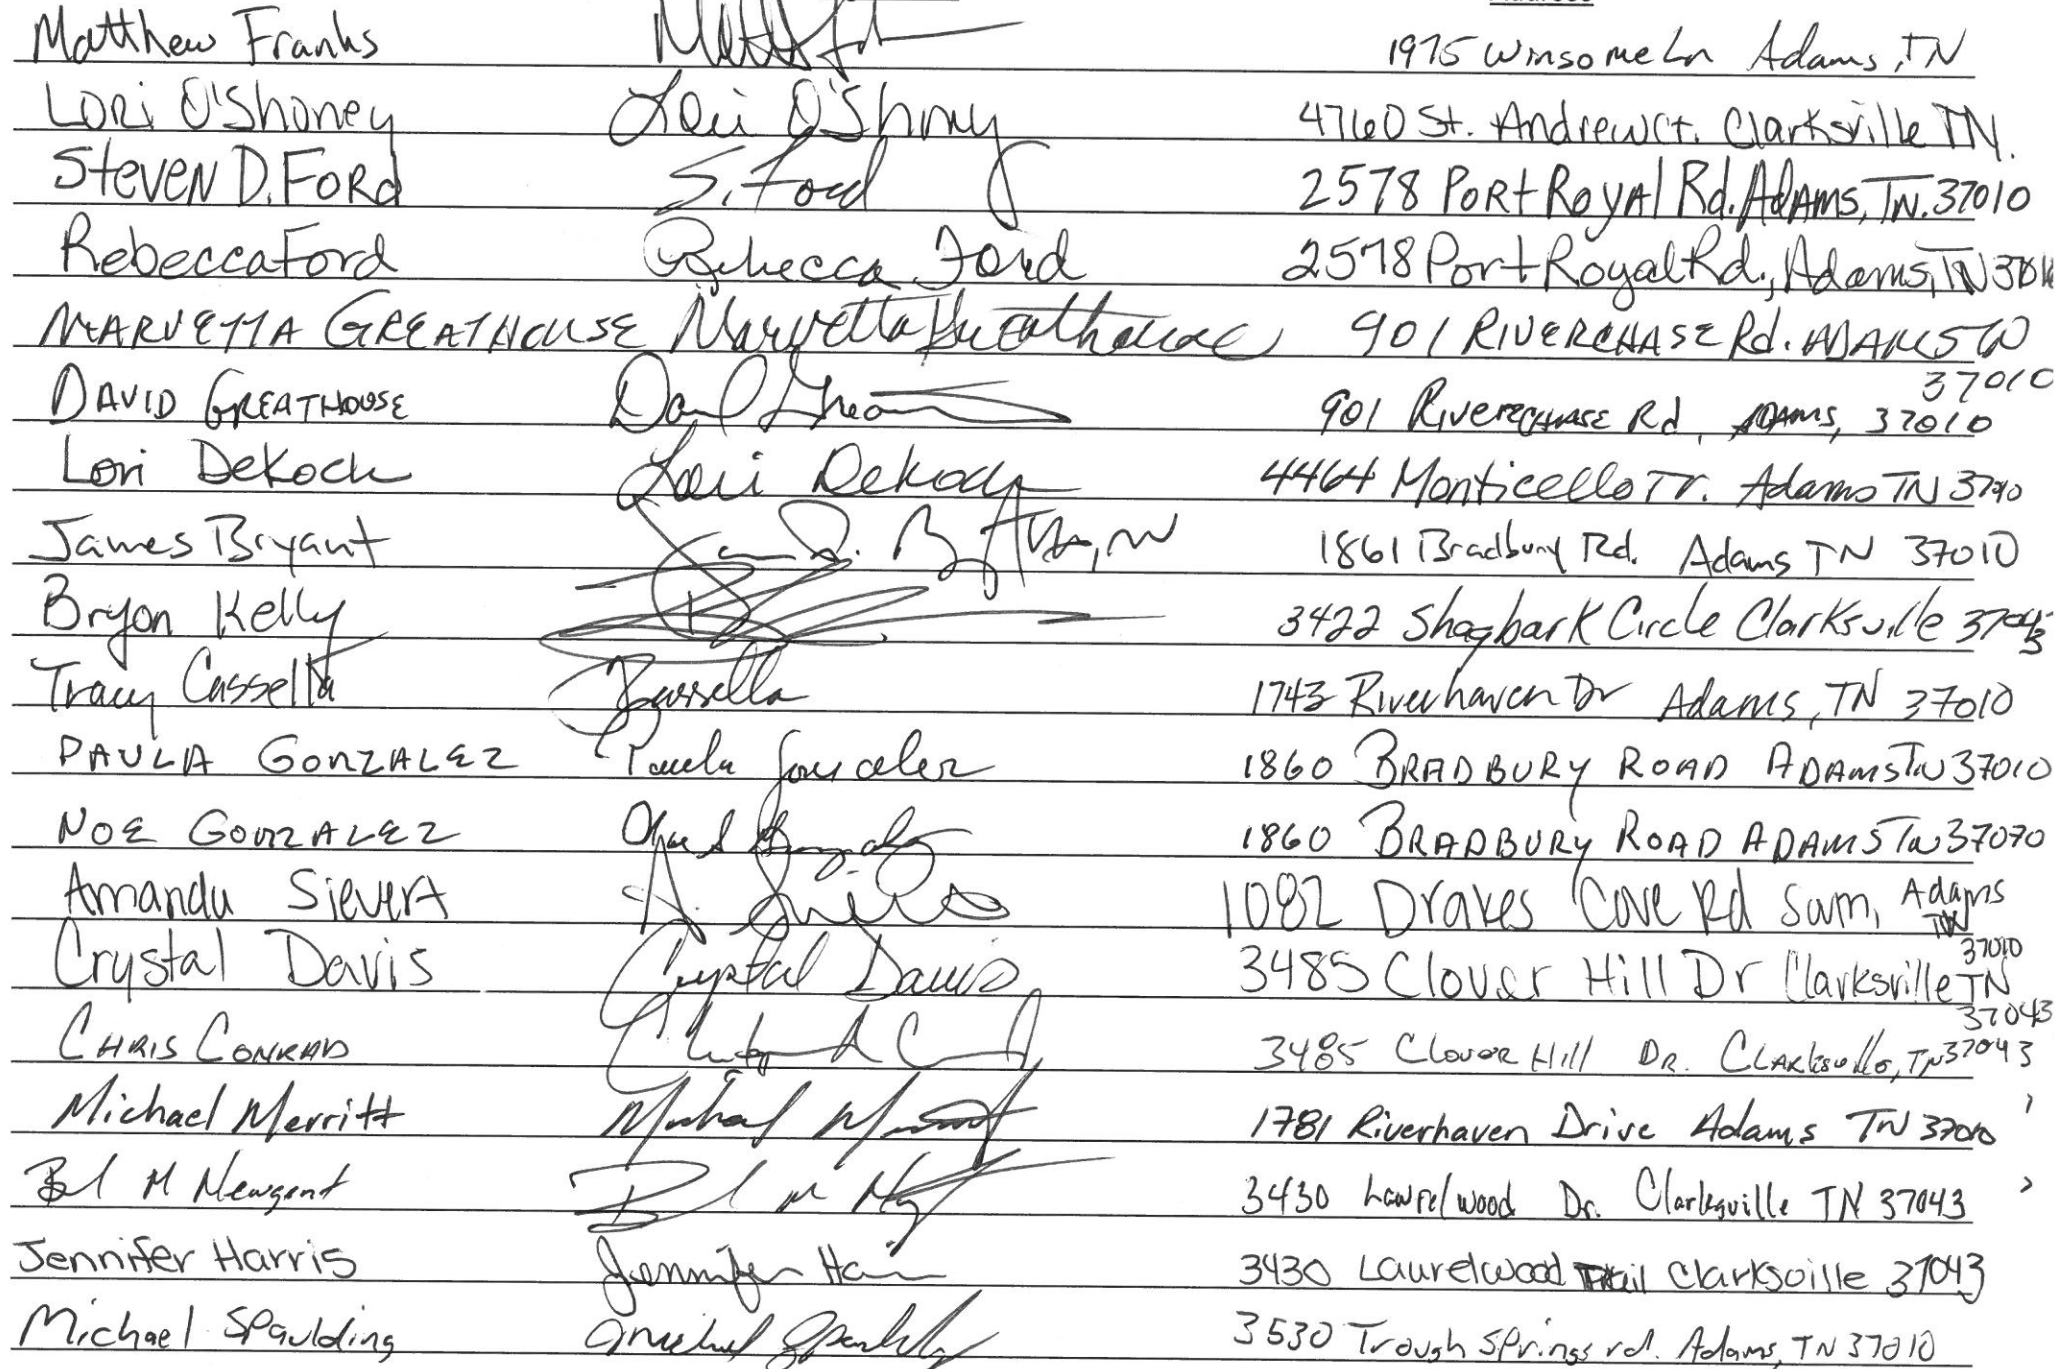 Address
Matthew Franks 1975 Winsome Ln Adams, TN
Lori O'Shoney Lori O'Shoney 4760 St. Andrew Ct. Clarksville TN.
Steven D. Ford S. Ford 2578 Port Royal Rd. Adams, TN. 37010
Rebecca Ford Rebecca Ford 2578 Port Royal Rd., Adams, TN 37010
Marvetta Greathouse Marvetta Greathouse 901 Riverchase Rd. Adams TN
37010
David Greathouse 901 Riverchase Rd, Adams, 37010
Lori DeKock Lori DeKock 4464 Monticello Tr. Adams TN 37010
James Bryant 1861 Bradbury Rd. Adams TN 37010
Bryon Kelly 3422 Shagbark Circle Clarksville 37043
Tracy Cassella 1743 Riverhaven Dr Adams, TN 37010
Paula Gonzalez Paula Gonzalez 1860 Bradbury Road Adams TN 37010
Noe Gonzalez 1860 Bradbury Road Adams TN 37070
Amanda Sievert 1082 Drakes Cove Rd Sam, Adams TN
37010
Crystal Davis Crystal Davis 3485 Clover Hill Dr Clarksville TN
37043
Chris Conrad 3485 Clover Hill Dr. Clarksville, TN 37043
Michael Merritt Michael Merritt 1781 Riverhaven Drive Adams TN 37010
M Newgent 3430 Laurelwood Dr. Clarksville TN 37043
Jennifer Harris Jennifer Harris 3430 Laurelwood Trail Clarksville 37043
Michael Spaulding Michael Spaulding 3530 Trough Springs rd. Adams, TN 37010